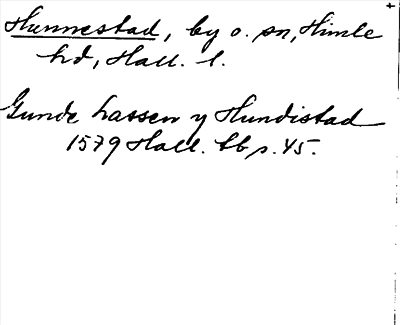 Hunnestad, by o. sn, Himle
hd, Hall. l.
Gunde Lassen y Hundistad
1579 Hall. tb p. 45.